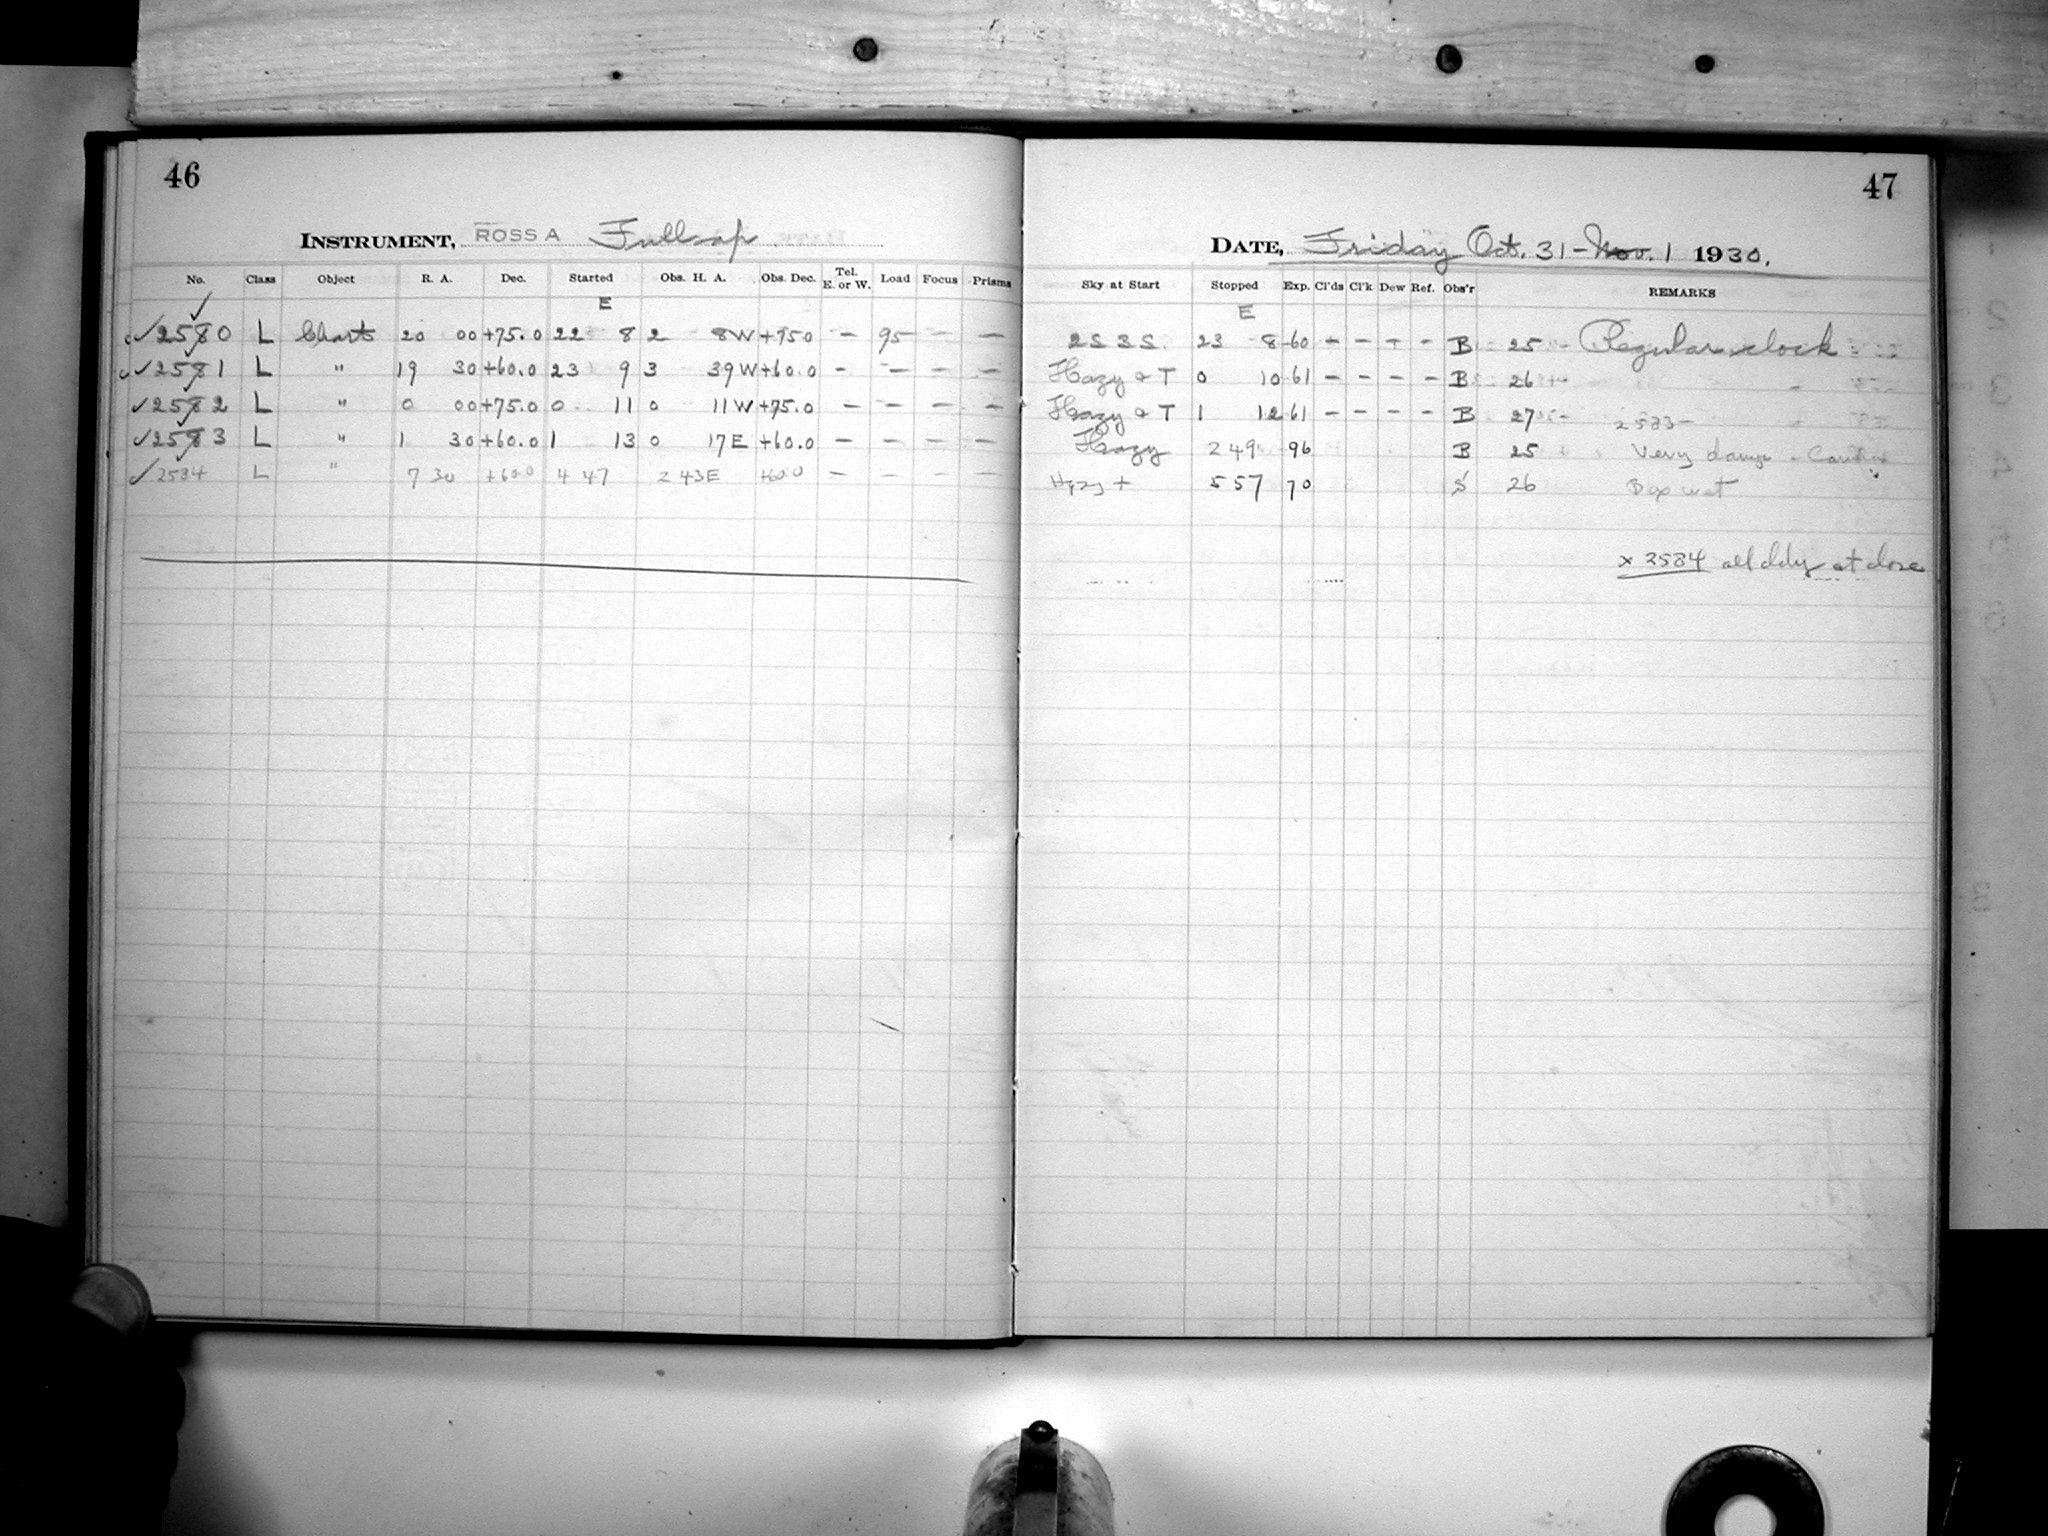 46
INSTRUMENT, ROSS A Full ap.
No. Class Object R. A. Dec. Started Obs. H. A. Obs. Dec. Tel. E. or W. Load Focus Prisms
E
✓2580 L Charts 20 00 +75.0 22 8 2 8W +75.0 – 95 – –
✓2581 L " 19 30 +60.0 23 9 3 39W +60.0 – – – –
✓2582 L " 0 00 +75.0 0 11 0 11W +75.0 – – – –
✓2583 L " 1 30 +60.0 1 13 0 17E +60.0 – – – –
✓2584 L " 7 30 +60.0 4 47 2 43E +60.0 – – – –
47
DATE, Friday Oct. 31 - Nov. 1 1930.
Sky at Start Stopped Exp. Cl'ds Cl'k Dew Ref. Obs'r REMARKS
E
2S 3S. 23 8 60 – – – – B 25 Regular clock
Hazy & T 0 10 61 – – – – B 26
Hazy & T 1 12 61 – – – – B 27 2583 –
Hazy 2 49 96 B 25 Very damp -
Hazy + 5 57 70 26 Box wet
x 2584 all ddy at close